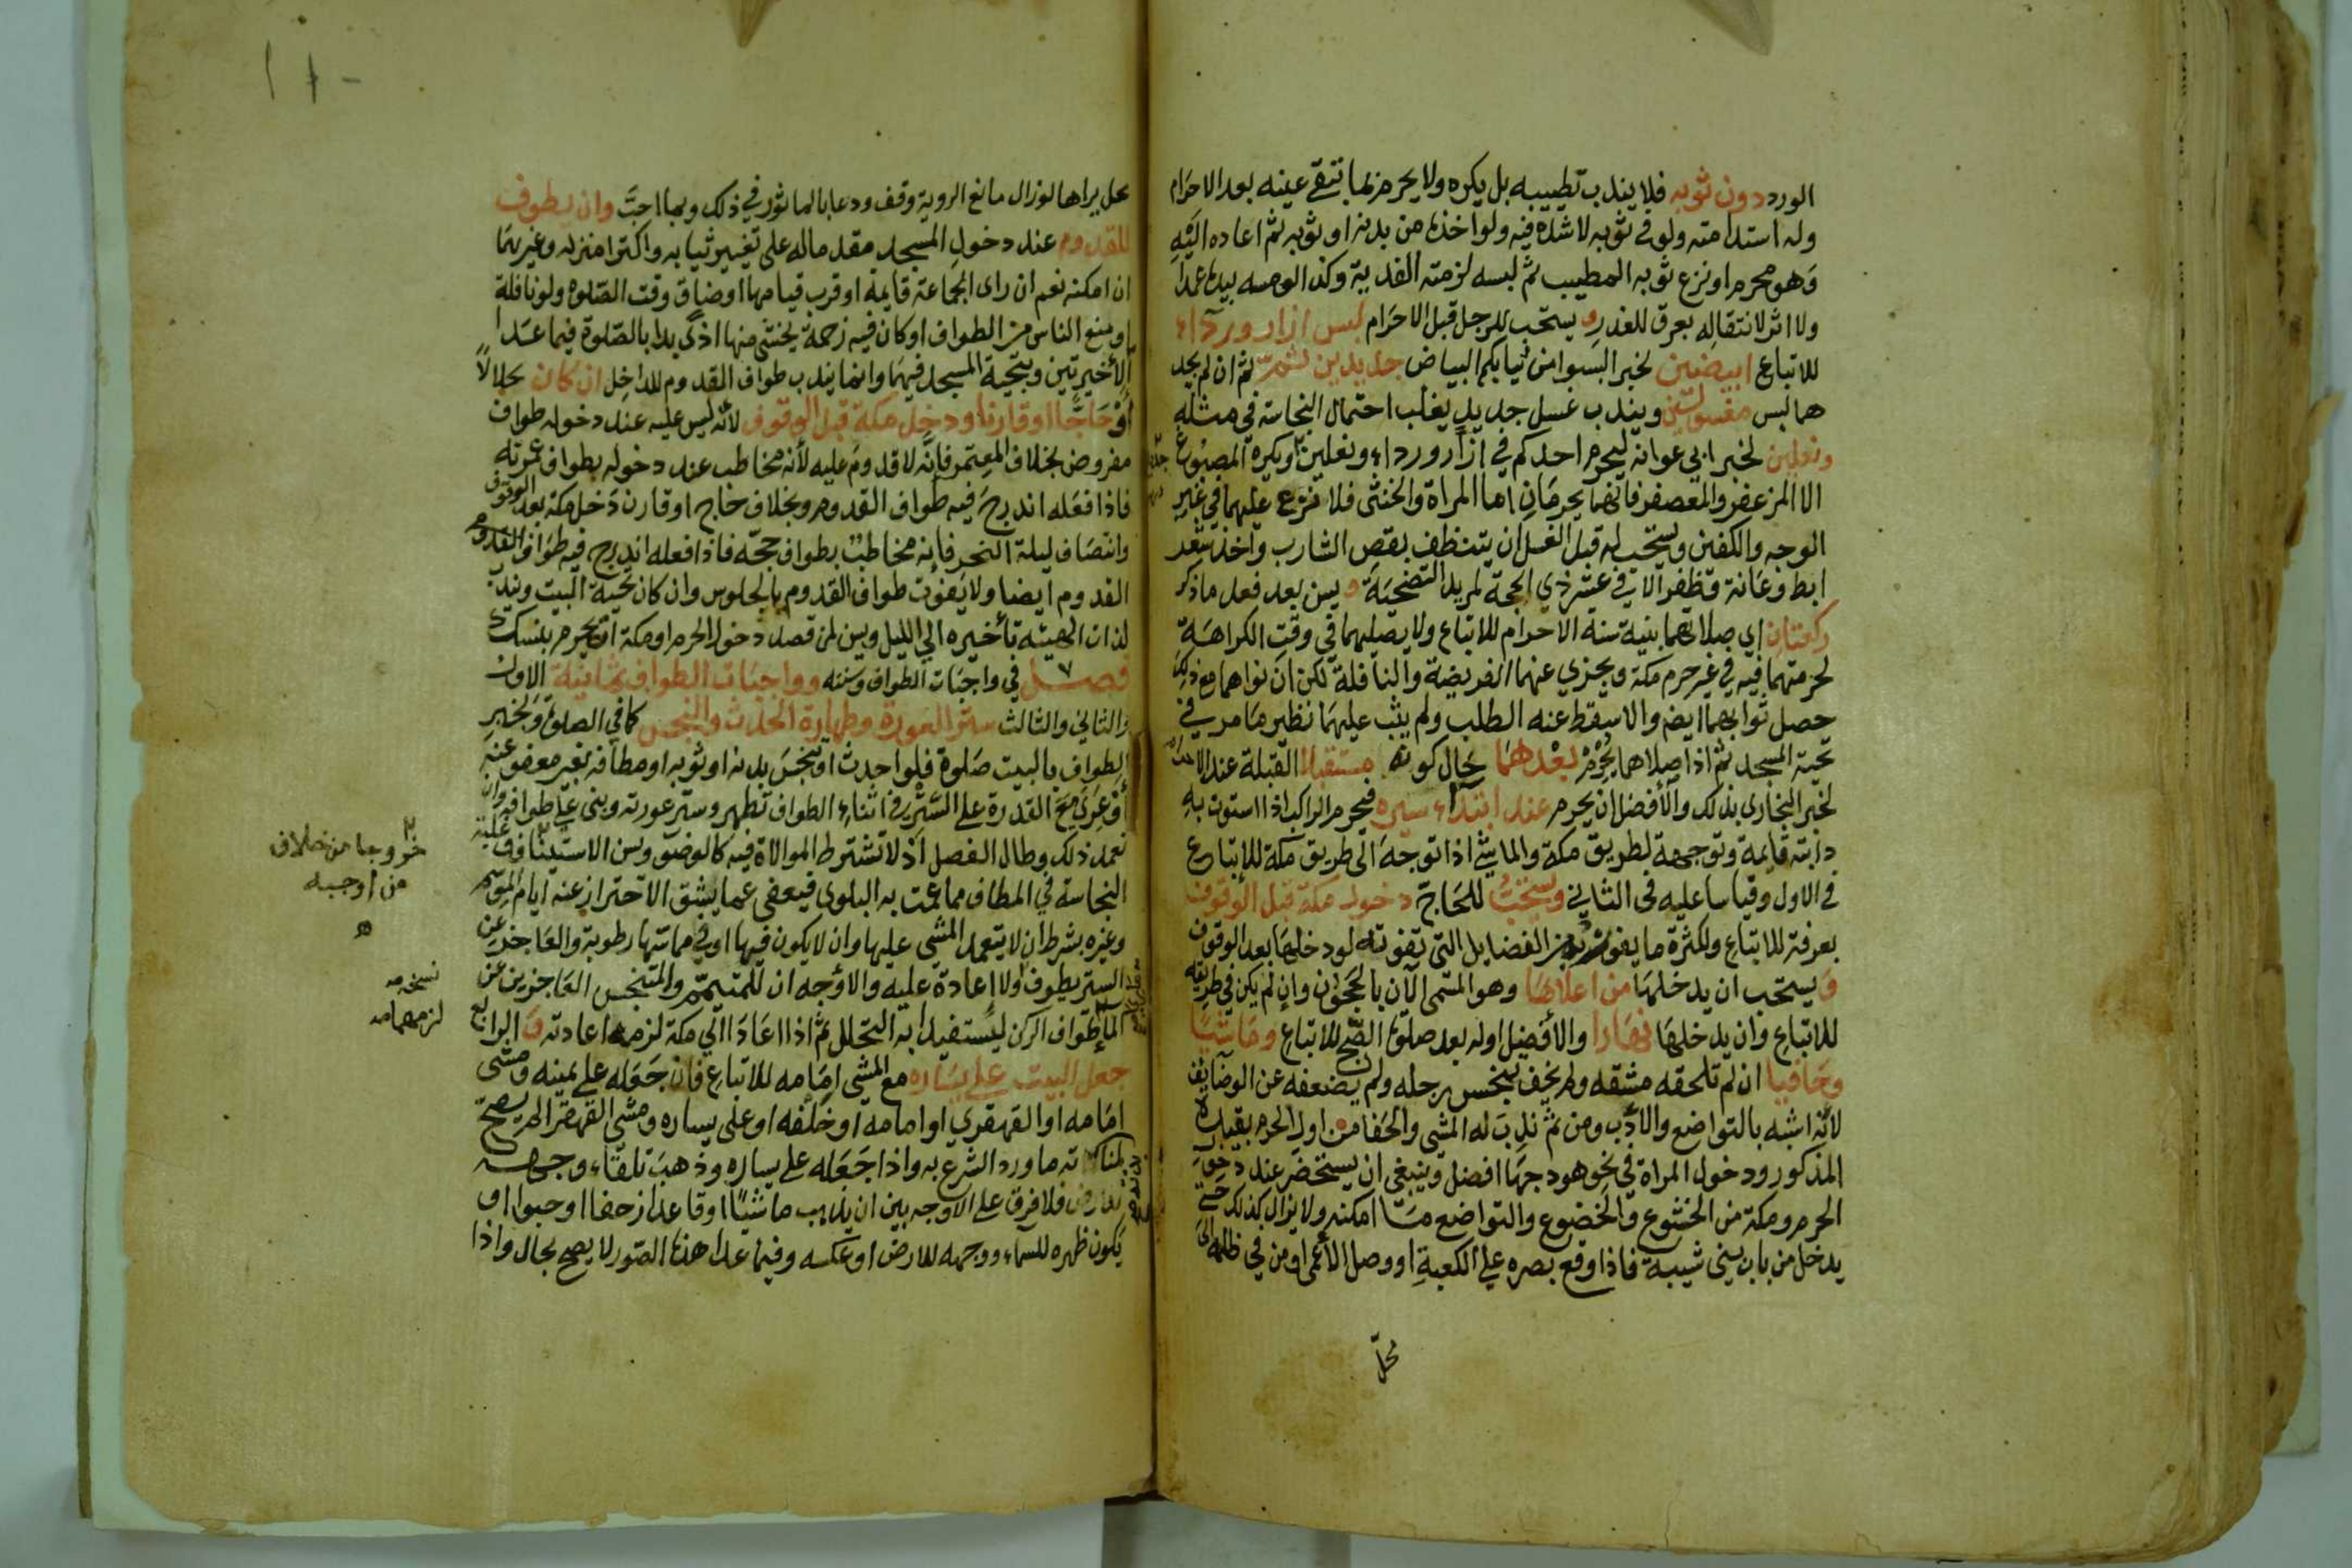 الورد دون ثوبه فلا يندب تطييبه بل يكره ولا يحرم بما تبقى عينه بعد الاحرام
وله استدامته ولو في ثوبه لا شده فيه ولو اخذه من بدنه او ثوبه ثم اعاده اليه
وهو محرم او نزع ثوبه المطيب ثم لبسه لزمته الفدية وكذا لو مسه بيده عمدا
ولا اثر لانتقاله بعرق للعذر و يستحب للرجل قبل الاحرام لبس ازار ورداء
للاتباع ابيضين لخبر البسوا من ثيابكم البياض جديدين ثم ان لم يجد
هما لبس مغسولين ويندب غسل جديد يغلب احتمال النجاسة في مثله
ونعلين لخبر ابي عوانه ليحرم احدكم في ازار ورداء ونعلين ويكره المصبوغ
الا المزعفر والمعصفر فانهما يحرمان اما المراة والخنثى فلا نزع عليهما في غير
الوجه والكفين ويستحب له قبل الغسل ان يتنظف بقص الشارب واخذ شعر
ابط وعانة وظفر الا في عشر ذي الحجة لمريد التضحية و يسن بعد فعل ما ذكر
ركعتان اي صلاتهما بنية سنة الاحرام للاتباع ولا يصليهما في وقت الكراهة
لحرمتهما فيه في غير حرم مكة ويجزي عنهما الفريضة والنافلة لكن ان نواهما مع ذلك
حصل ثوابهما ايضا والا سقط عنه الطلب ولم يثب عليهما نظير ما مر في
تحية المسجد ثم اذا صلاهما يحرم بعدهما حال كونه مستقبلا القبلة عند الاحرام
لخبر البخاري بذلك والأفضل ان يحرم عند ابتداء سيره فيحرم الراكب اذا استوت به
دابته قايمة وتوجهه لطريق مكة والماشي اذا توجه الى طريق مكة للاتباع
في الاول وقياسا عليه في الثاني ويستحب للحاج دخول مكة قبل الوقوف
بعرفة للاتباع ولكثرة ما يفوته من الفضايل التي تفوته لو دخلها بعد الوقوف
ويستحب ان يدخلها من اعلاها وهو المسمى الآن بالحجون وان لم يكن في طريقه
للاتباع وان يدخلها نهارا والأفضل اوله بعد صلوة الصبح للاتباع وماشيا
وحافيا ان لم تلحقه مشقه ولم يخف تنجس رجله ولم يضعفه عن الوضايف
لانه اشبه بالتواضع والادب ومن ثم ندب له المشي والحفا من اول الحرم بقيده
المذكور ودخول المراة في نحو هودجها افضل وينبغي ان يستحضر عند دخول
الحرم ومكة من الخشوع والخضوع والتواضع ما امكنه ولا يزال كذلك حتى
يدخل من باب بني شيبة فاذا وقع بصره على الكعبة او وصل الأعمى او من في ظلمة الى
محل
محل يراها لو زال مانع الروية وقف ودعا بالماثور في ذلك وبما احب وان يطوف
للقدوم عند دخول المسجد مقدما له على تغيير ثيابه واكترا منزله وغيرهما
ان امكنه نعم ان راى الجماعة قايمة او قرب قيامها او ضاق وقت الصلوة ولو نافلة
او منع الناس من الطواف او كان فيه زحمة يخشى منها اذى بدا بالصلوة فيما عدا
الأخيرتين وبتحية المسجد فيهما وانما يندب طواف القدوم للداخل ان كان حلالا
أو حاجا او قارنا ودخل مكة قبل الوقوف لانه ليس عليه عند دخوله طواف
مفروض بخلاف المعتمر فانه لا قدوم عليه لأنه مخاطب عند دخوله بطواف عمرته
فاذا فعله اندرج فيه طواف القدوم وبخلاف حاج او قارن دخل مكة بعد الوقوف
وانتصاف ليلة النحر فانه مخاطب بطواف حجه فاذا فعله اندرج فيه طواف القدوم
القدوم ايضا ولا يفوت طواف القدوم بالجلوس وان كان تحية البيت ويندب
لذات الهيئه تأخيره الى الليل ويسن لمن قصد دخول الحرم او مكة ان يحرم بنسك
فصل في واجبات الطواف وسننه وواجبات الطواف ثمانية الاول
والثاني والثالث ستر العورة وطهارة الحدث والنجس كما في الصلوة ولخبر
الطواف بالبيت صلوة فلو احدث او تنجس بدنه او ثوبه او مطافه بغير معفو عنه
أو عري مع القدرة على الستر في اثناء الطواف تطهر وستر عورته وبنى على طوافه وان
تعمد ذلك وطال الفصل اذ لا تشترط الموالاة فيه كالوضوء ويسن الاستيناف وغلبة
النجاسة في المطاف مما عمت به البلوى فيعفى عما يشق الاحتراز عنه ايام الموسم
وغيره بشرط ان لا يتعمد المشي عليها وان لا يكون فيها او في مماسها رطوبة والعاجز عن
الستر يطوف ولا إعادة عليه والأوجه ان للمتيمم والمتنجس العاجزين عن
الماء طواف الركن ليستفيدا به التحلل ثم اذا اعادا الى مكة لزمه اعادته و الرابع
جعل البيت على يساره مع المشي امامه للاتباع فان جعله على يمينه ومشى
امامه او القهقري او امامه او خلفه او على يساره ومشى القهقرا لم يصح
لمنابذته ما ورد الشرع به واذا جعله على يساره وذهب تلقاء وجهه
فلا فرق على الاوجه بين ان يذهب ماشيا او قاعدا زحفا او حبوا او
يكون ظهره للسماء ووجهه للارض او عكسه وفيما عدا هذه الصور لا يصح بحال واذا
خروجا من خلاف
من اوجبه
نسخه
لزمهما